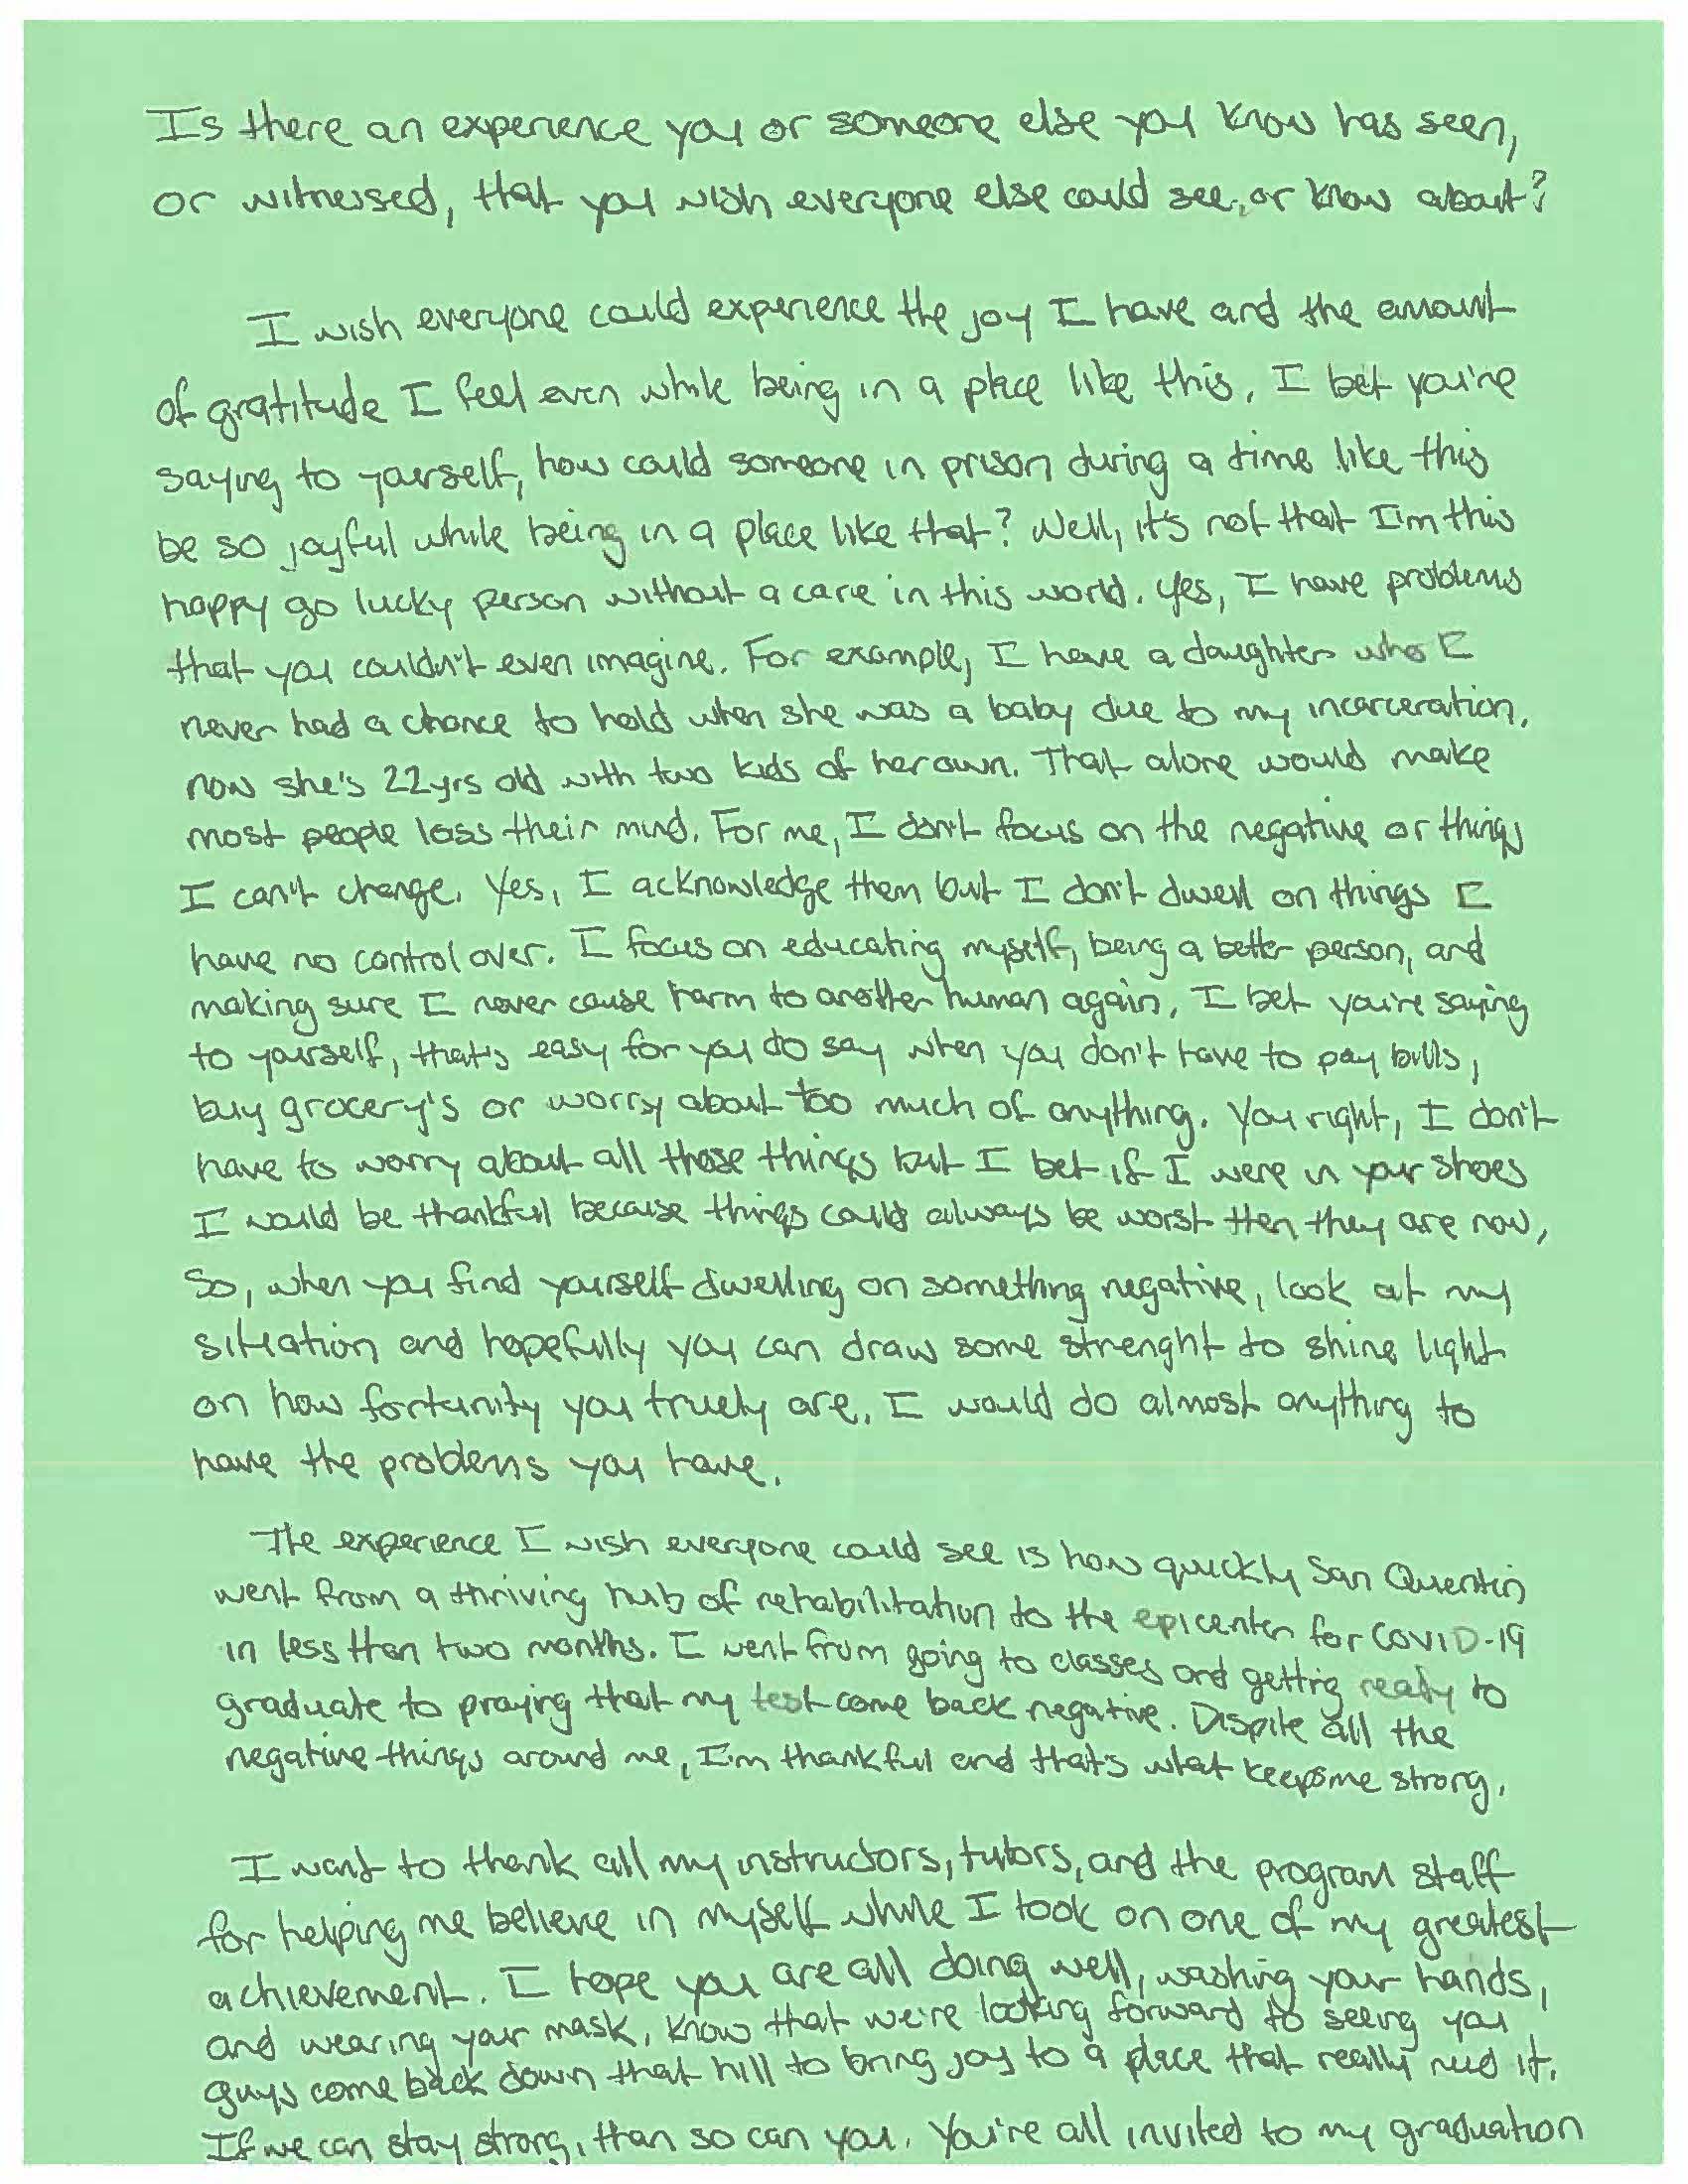 Is there an experience you or someone else you know has seen,
or witnessed, that you wish everyone else could see, or know about?
I wish everyone could experience the joy I have and the amount
of gratitude I feel even while being in a place like this. I bet you're
saying to yourself, how could someone in prison during a time like this
be so joyful while being in a place like that? Well, it's not that I'm this
happy go lucky person without a care in this world. Yes, I have problems
that you couldn't even imagine. For example, I have a daughter who I
never had a chance to hold when she was a baby due to my incarceration,
now she's 22yrs old with two kids of her own. That alone would make
most people loss their mind. For me, I don't focus on the negative or things
I can't change. Yes, I acknowledge them but I don't dwell on things I
have no control over. I focus on educating myself, being a better person, and
making sure I never cause harm to another human again. I bet you're saying
to yourself, that's easy for you do say when you don't have to pay bills,
buy grocery's or worry about too much of anything. You right, I don't
have to worry about all those things but I bet if I were in your shoes
I would be thankfull because things could always be worst then they are now,
So, when you find yourself dwelling on something negative, look at my
sitiation and hopefully you can draw some strenght to shine light
on how fortunity you truely are. I would do almost anything to
have the problems you have.
The experience I wish everyone could see is how quickly San Quentin
went from a thriving hub of rehabilitation to the epicenter for COVID-19
in less than two months. I went from going to classes and getting ready to
graduate to praying that my test come back negative. Dispite all the
negative things around me, I'm thankful and that's what keeps me strong.
I want to thank all my instructors, tutors, and the program staff
for helping me believe in myself while I took on one of my greatest
achievement. I hope you are all doing well, washing your hands,
and wearing your mask. Know that we're looking forward to seeing you
guys come back down that hill to bring joy to a place that really need it.
If we can stay strong, than so can you. You're all invited to my graduation